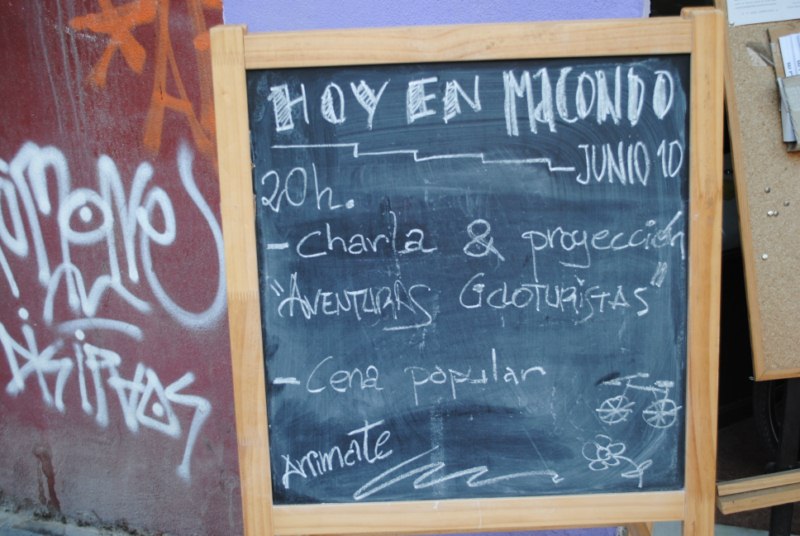 HOY EN MACONDO
JUNIO 10
20h.
- charla & proyección
"AVENTURAS CICLOTURISTAS"
- Cena popular
Arrimate